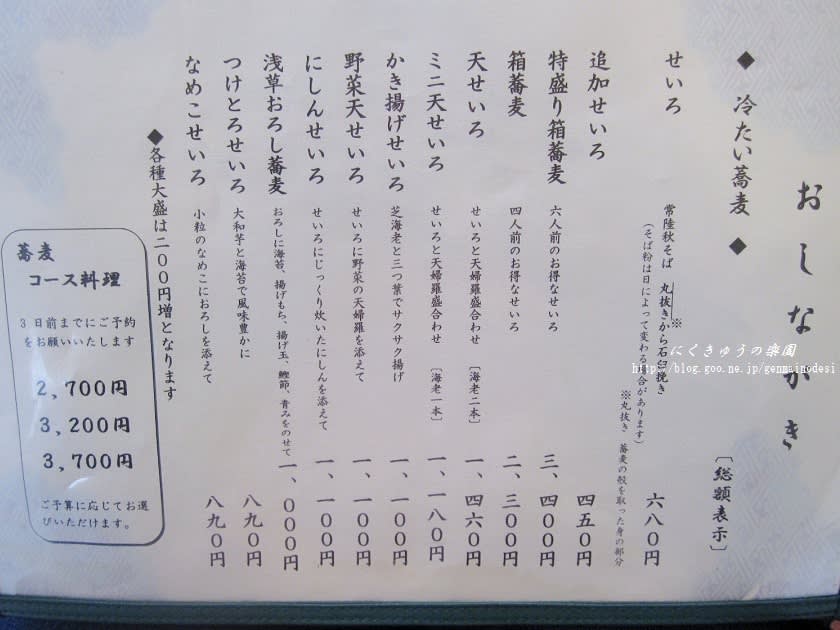 おしながき
〔総額表示〕
◆ 冷たい蕎麦 ◆
せいろ
常陸秋そば 丸抜き※から石臼挽き
(そば粉は日によって変わる場合があります)
※丸抜き 蕎麦の殻を取った身の部分
六八〇円
追加せいろ
四五〇円
特盛り箱蕎麦 六人前のお得なせいろ 三、四〇〇円
箱蕎麦 四人前のお得なせいろ 二、三〇〇円
天せいろ せいろと天婦羅盛合わせ 〔海老二本〕 一、四六〇円
ミニ天せいろ せいろと天婦羅盛合わせ 〔海老一本〕 一、一八〇円
かき揚げせいろ 芝海老と三つ葉でサクサク揚げ 一、一〇〇円
野菜天せいろ せいろに野菜の天婦羅を添えて 一、一〇〇円
にしんせいろ せいろにじっくり炊いたにしんを添えて 一、一〇〇円
浅草おろし蕎麦 おろしに海苔、揚げもち、揚げ玉、鰹節、青みをのせて 一、〇〇〇円
つけとろせいろ 大和芋と海苔で風味豊かに 八九〇円
なめこせいろ 小粒のなめこにおろしを添えて 八九〇円
◆各種大盛は二〇〇円増となります
蕎麦
コース料理
3日前までにご予約
をお願いいたします
2,700円
3,200円
3,700円
ご予算に応じてお選
びいただけます。
にくきゅうの楽園
http://blog.goo.ne.jp/genmainodesi